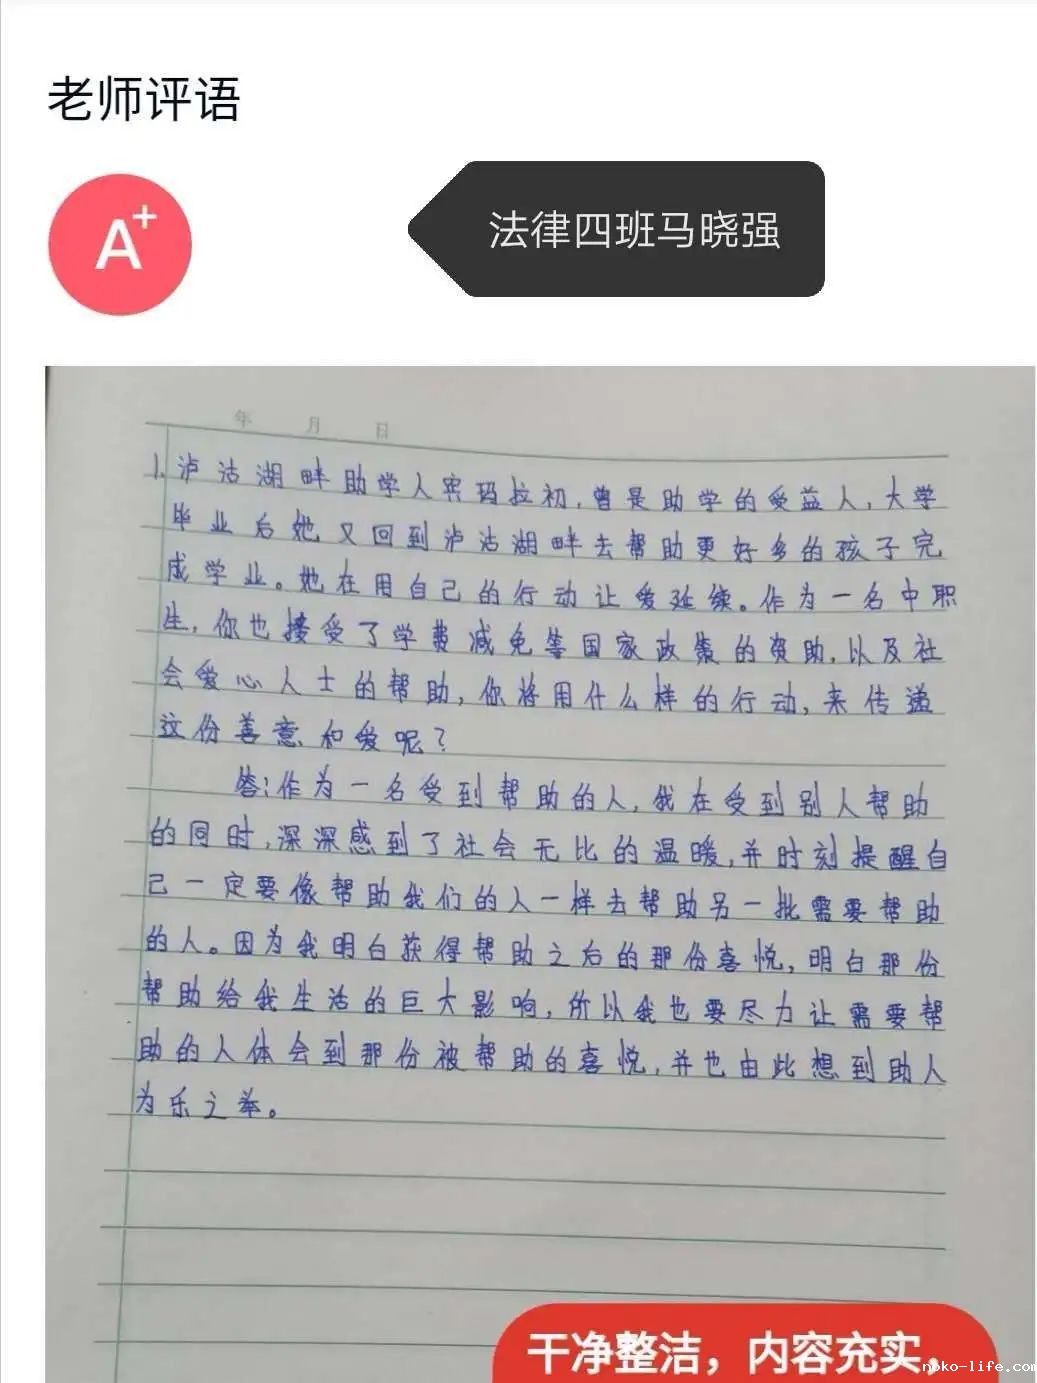 老师评语
A+
法律四班马晓强
年 月 日
1.泸沽湖畔助学人宾玛拉初,曾是助学的受益人,大学
毕业后她又回到泸沽湖畔去帮助更好多的孩子完
成学业。她在用自己的行动让爱延续。作为一名中职
生,你也接受了学费减免等国家政策的资助,以及社
会爱心人士的帮助,你将用什么样的行动,来传递
这份善意和爱呢?
答:作为一名受到帮助的人,我在受到别人帮助
的同时,深深感到了社会无比的温暖,并时刻提醒自
己一定要像帮助我们的人一样去帮助另一批需要帮助
的人。因为我明白获得帮助之后的那份喜悦,明白那份
帮助给我生活的巨大影响,所以我也要尽力让需要帮
助的人体会到那份被帮助的喜悦,并也由此想到助人
为乐之举。
干净整洁，内容充实，
noko-life.com